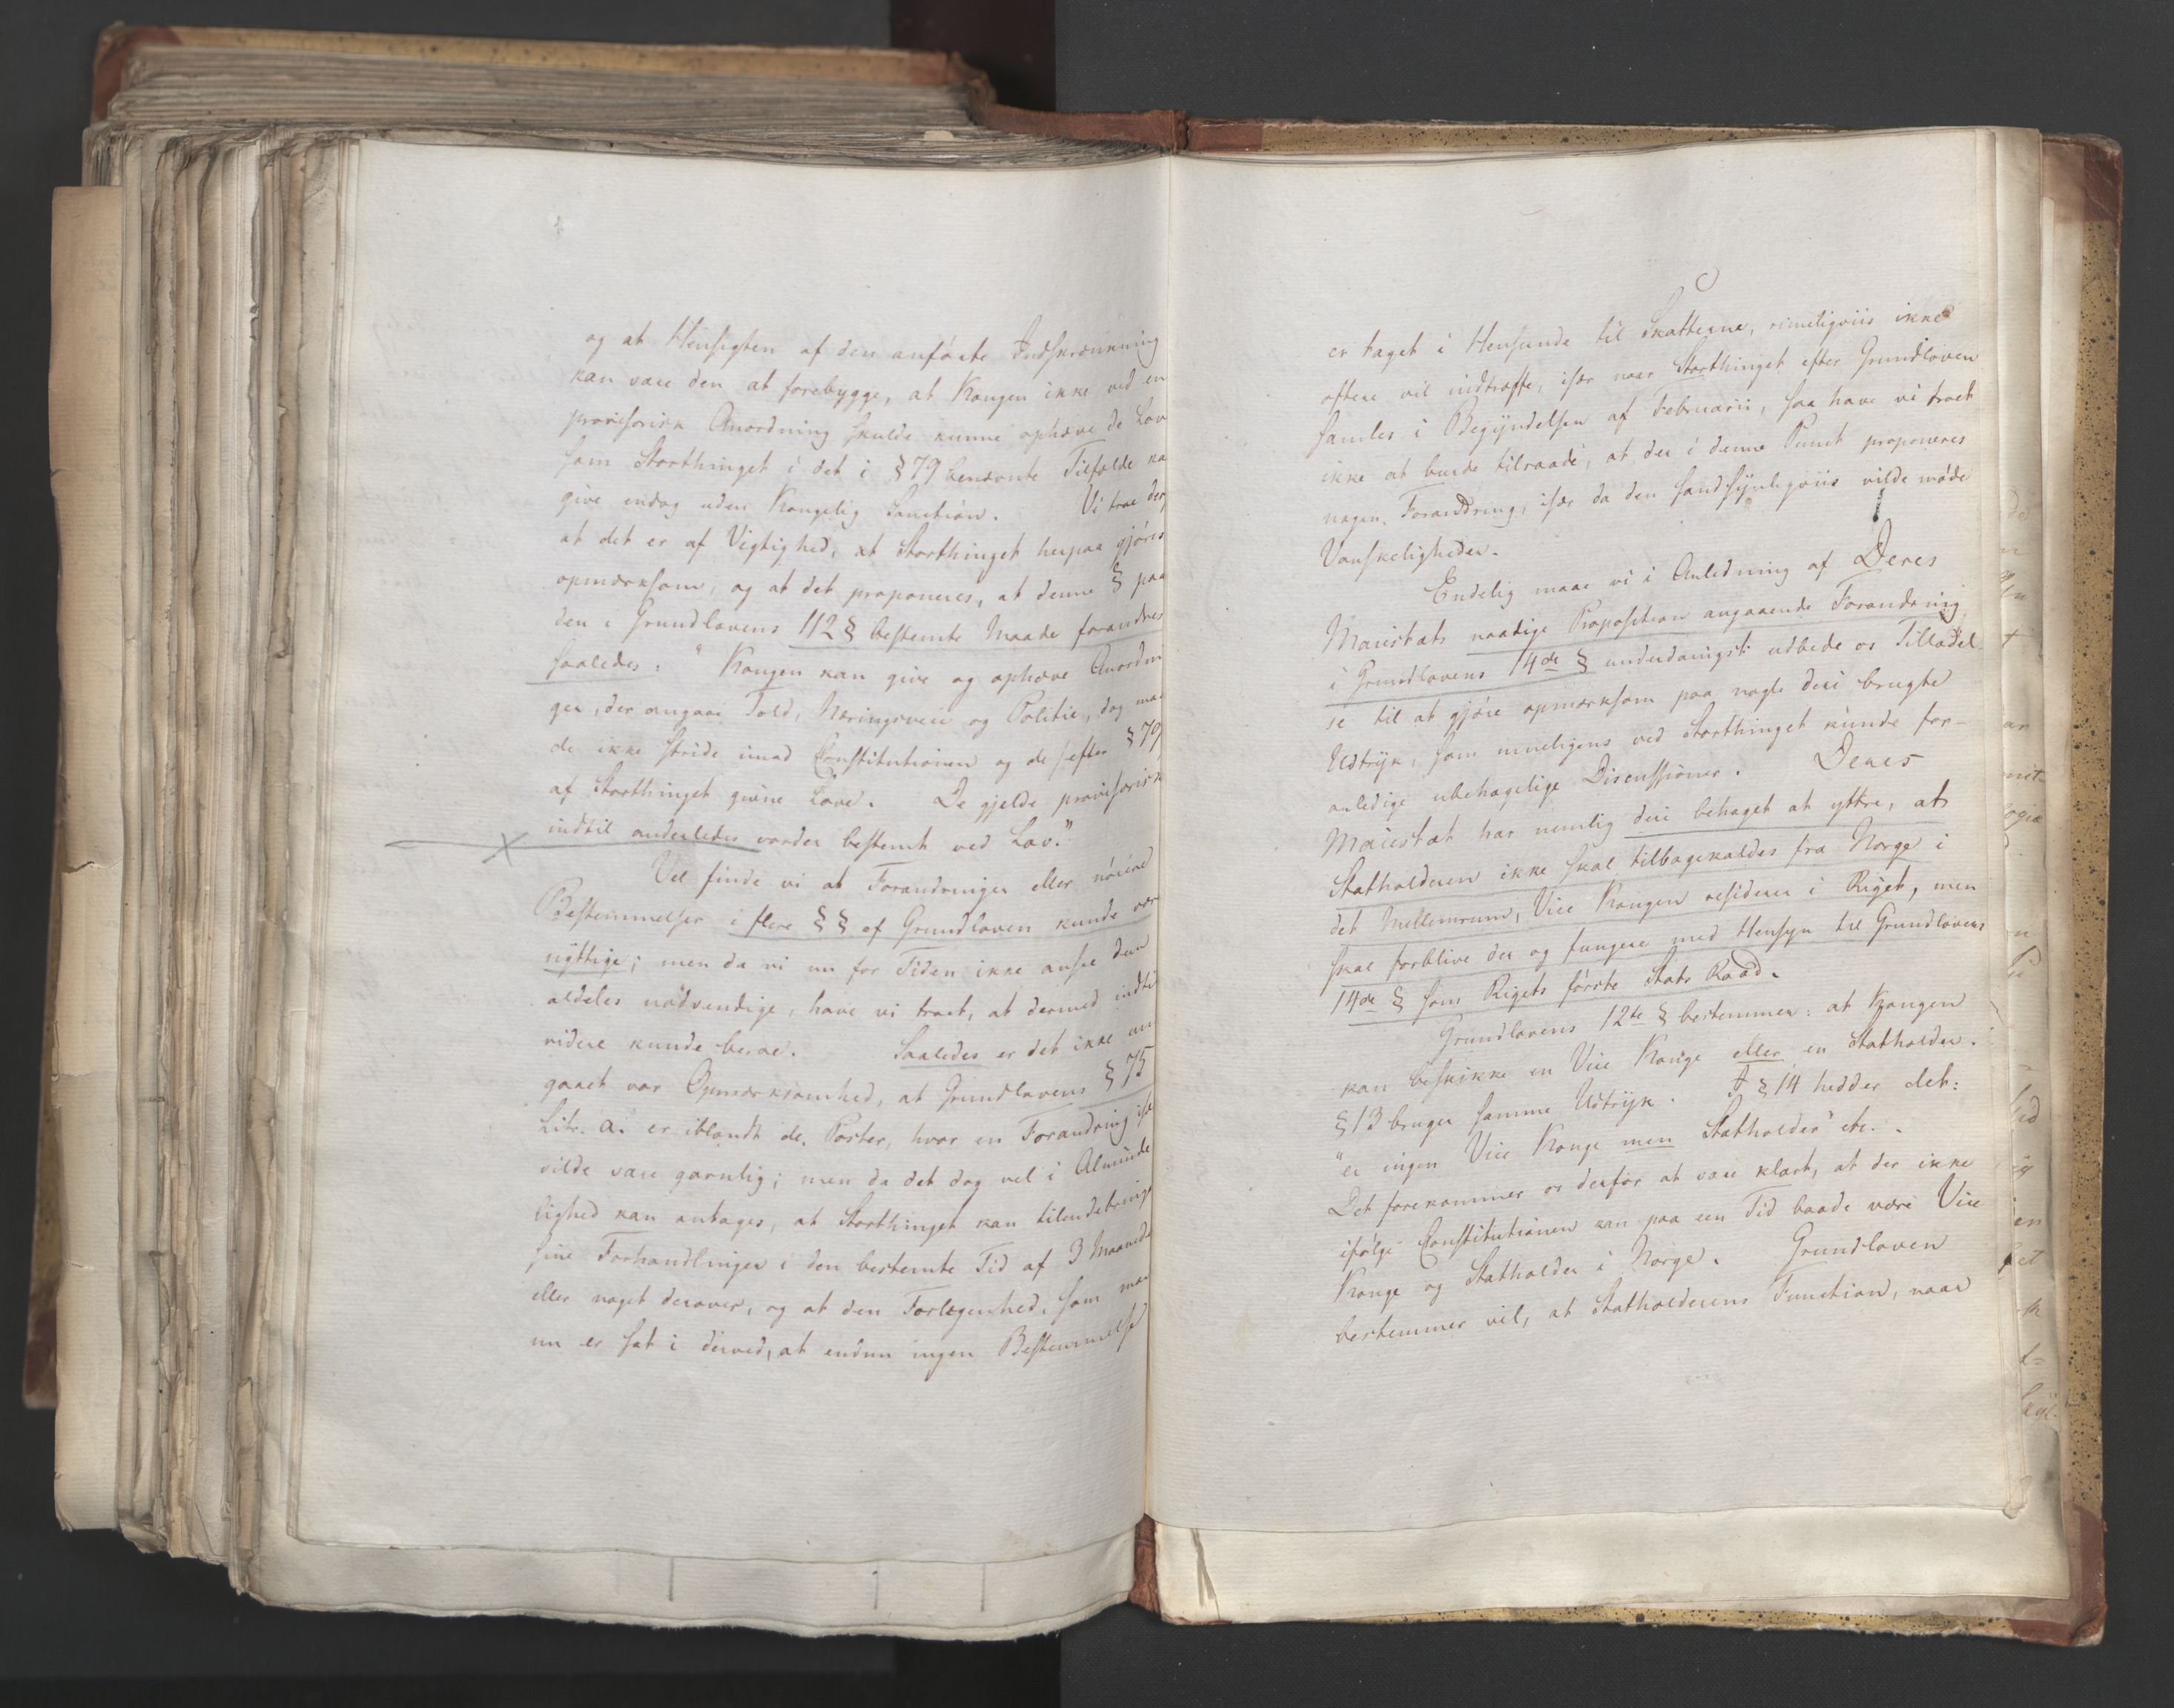 og at Hensigten af den anførte Indskrænkning
kan være den at forebygge, at Kongen ikke ved en
provisorisk Anordning skulde kunne ophæve de Lov
som Storthinget i det i § 79 benævnte Tilfælde ka
give endog uden Kongelig Sanction. Vi troe der
at det er af Vigtighed, at Storthinget herpaa gjöres
opmærksom, og at det proponeres, at denne § paa
den i Grundlovens 112 § bestemte Maade forandres
saaledes: "Kongen kan give og ophæve Anordni
ger, der angaae Told, Næringsveie og Politie, dog maa
de ikke stride imod Constitutionen og de efter § 79
af Storthinget givne Love. De gjelde provisorisk
indtil anderledes vorder bestemt ved Lov."
Vel finde vi at Forandringer eller nöiere
Bestemmelser i flere §§ af Grundloven kunde vær
nyttige; men da vi nu for Tiden ikke ansee dem
aldeles nödvendige, have vi troet, at dermed indtil
videre kunde beroe. Saaledes er det ikke und
gaaet vor Opmærksomhed, at Grundlovens § 75
Litr. a. er iblandt de Poster, hvor en Forandring
vilde være gavnlig; men da det dog vel i Alminde
lighed kan antages, at Storthinget kan tilendebringe
sine Forhandlinger i den bestemte Tid af 3 Maaneder
eller noget derover, og at den Forlegenhed, som man
nu er sat i derved, at endnu ingen Bestemmelse
er taget i Henseende til Skatterne, rimeligviis ikke
oftere vil indtræffe, især naar Storthinget efter Grundloven
samles i Begyndelsen af Februarii, saa have vi troet
ikke at burde tilraade, at der i denne Punct proponeres
nogen Forandring, især da den sandsynligviis vilde möde
Vanskeligheder.
Endelig maae vi i Anledning af Deres
Maiestæts naadige Proposition angaaende Forandring
i Grundlovens 14de § underdanigst udbede os Tilladel
se til at gjöre opmærksom paa nogle deri brugte
Udtryk, som mueligens ved Storthinget kunde for-
anledige ubehagelige Discussioner. Deres
Maiestæt har nemlig deri behaget at yttre, at
Statholderen ikke skal tilbagekaldes fra Norge i
det Mellemrum, Vice Kongen residerer i Riget, men
skal forblive der og fungere med Hensyn til Grundlovens
14de § som Rigets förste Stats Raad.
Grundlovens 12te § bestemmer: at Kongen
kan beskikke en Vice Konge eller en Statholder.
§ 13 bruger samme Udtryk. I § 14 hedder det:
"er ingen Vice Konge men Statholder" etc.
Det forekommer os derfor at være klart, at der ikke
ifölge Constitutionen kan paa een Tid baade være Vice
Konge og Statholder i Norge. Grundloven
bestemmer vel, at Statholderens Function, naar